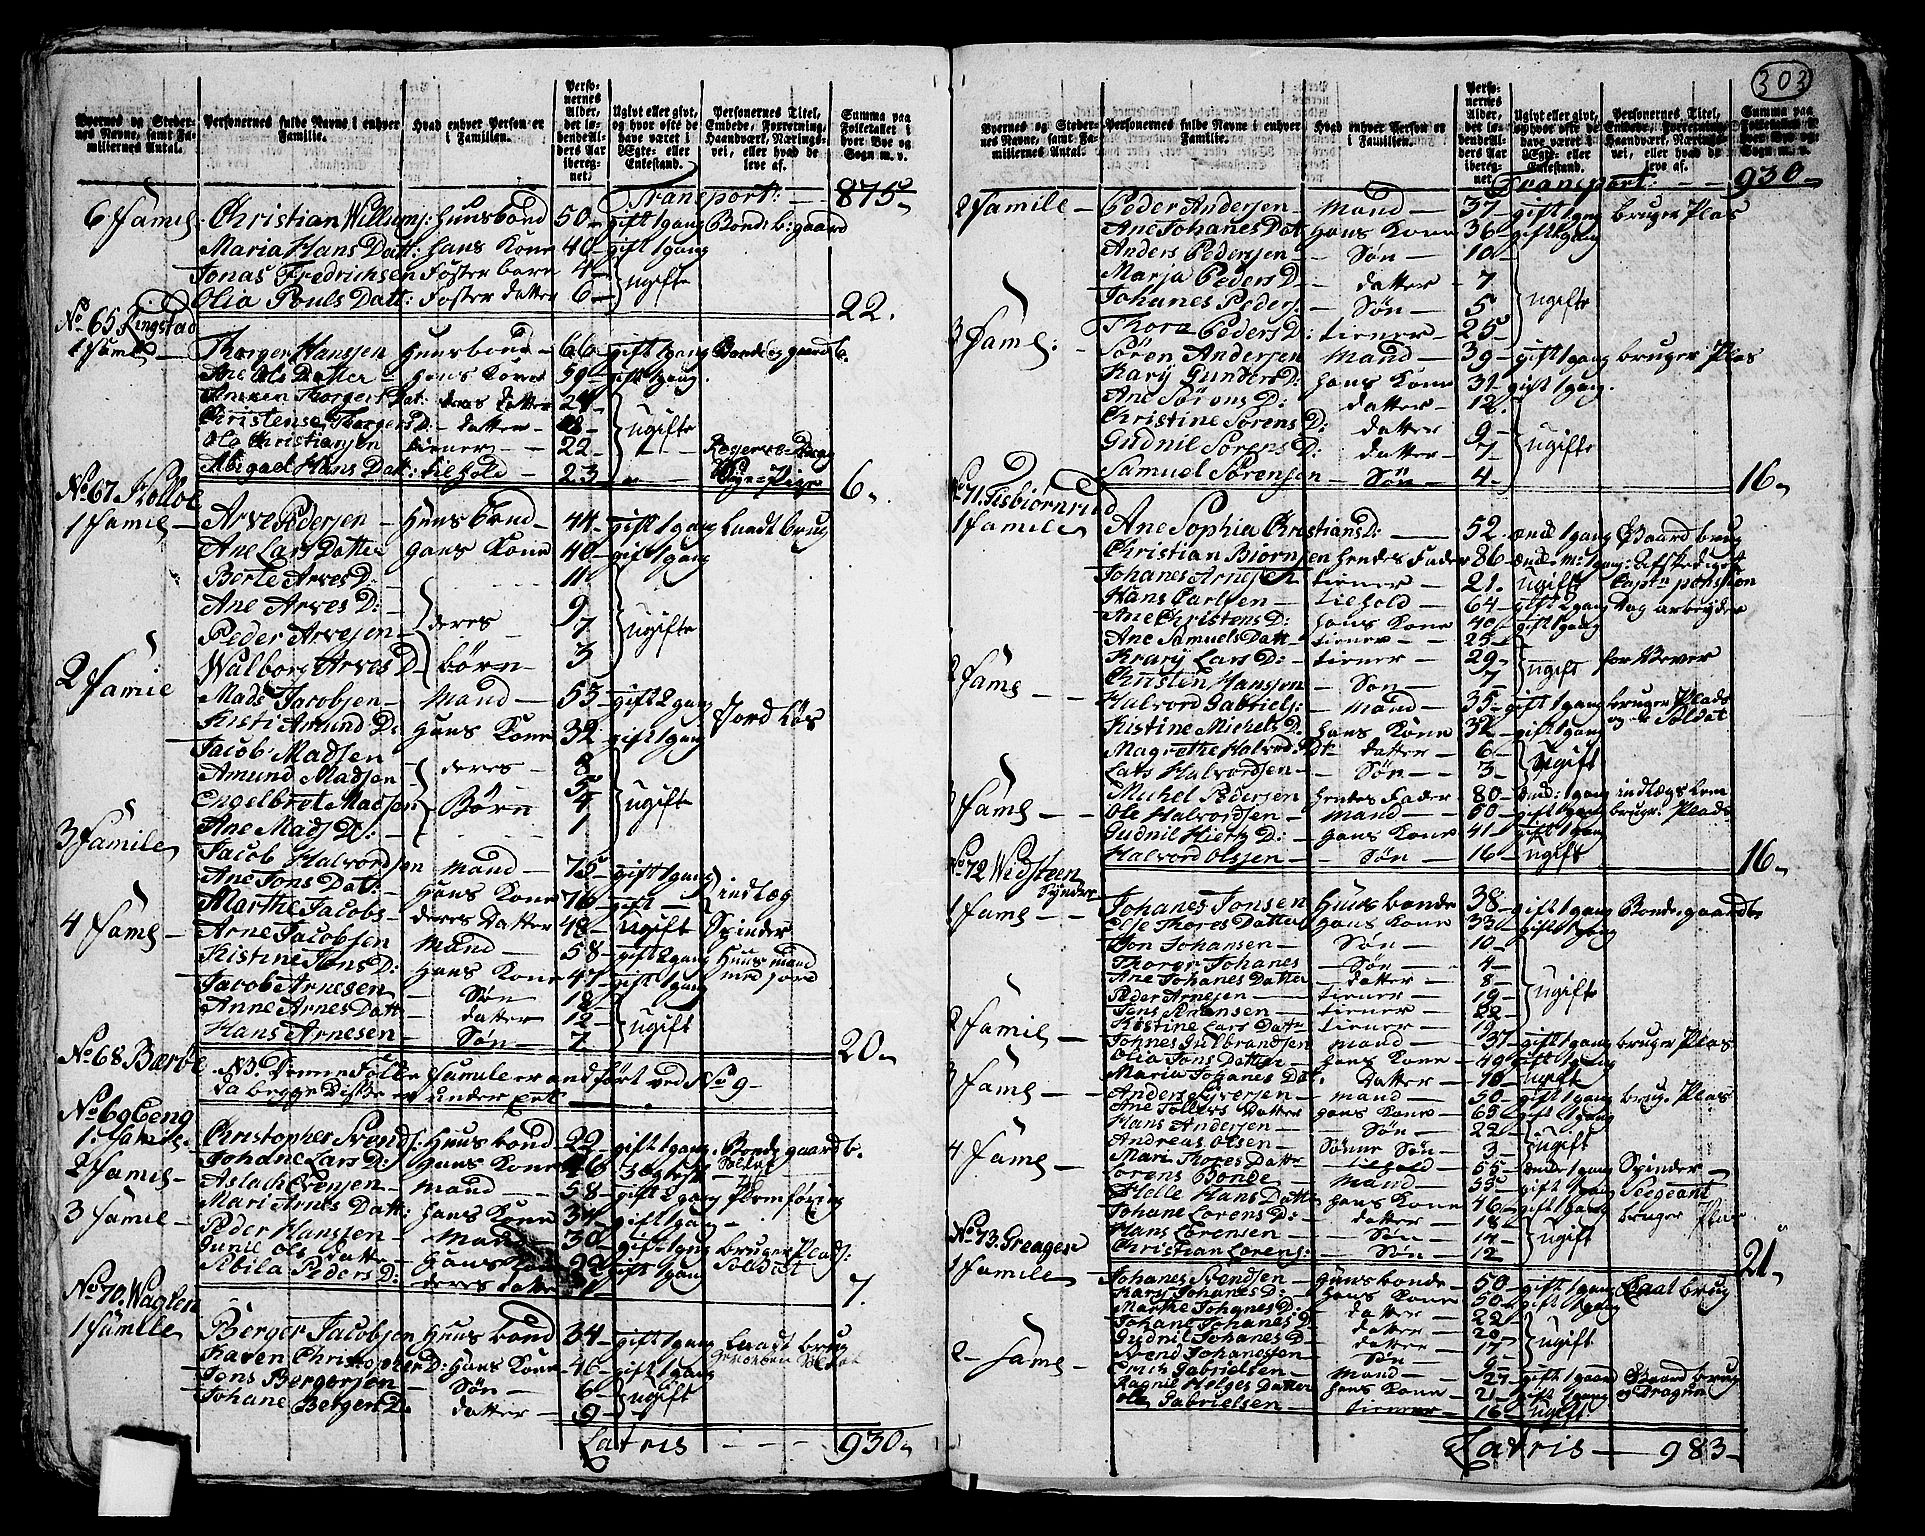 Byernes og Stedernes Navne, samt Familiernes Antal.
Personernes fulde Navne i enhver Familie.
Hvad enhver Person er i Familien.
Personernes Alder, det løbende Alders Aar iberegnet.
Ugivt eller givt, og hvor ofte de have været i Ægte- eller Enkestand.
Personernes Titel, Embede, Forretning, Haandværk, Næringsvei, eller hvad de leve af.
Summa paa Folketallet i hver Bye og Sogn m. v.
Transport: — 875
6 Famil: Christian Willums: Huusbond 50 gift 1 gang Bonde b: gaard
Maria Hans Datt: hans Kone 40 gift 1 gang
Jonas Fredrichsen Foster barn 4 ugifte
Olia Pouls Datt: Foster datter 6 22.
No 65 Ringstad
1 Famile — Thorger Hansen Huusbond 66 gift 1 gang Bonde og gaardb.
Ane Ols Datter hans Kone 59 gift 1 gang
Thorgers Dat: deres datter 24
Christense Thorgers D: datter ugifte
Ole Christiansen tiener 22
Abigael Hans Datt: tilhold 23 Sye-Pige 6
No 67
1 Famile — Arve Pedersen Huusbond 44 gift 1 gang Laadt brug
Ane Lars Datter hans Kone 40 gift 1 gang
Berte Arves D: 11
Ane Arves D: deres 9
Peder Arvesen 7 ugifte
Walborg Arves D børn 3
2 Famile Mads Jacobsen Mand 53 gift 2 gang Jord Løs
Kisti Amund D: Hans Kone 32 gift 1 gang
Jacob Madsen 8
Amund Madsen deres 5
Engelbret Madsen Børn 4 ugifte
Ane Mads D: 1
3 Famile Jacob Halvordsen Mand 75 gift 1 gang
Ane Jons Dat: Hans Kone 76 gift indlæg
Marthe Jacobs deres Datter 48 ugift Spinder
4 Fame Arne Jacobsen Mand 58 gift 2 gang Huusmand
Kistine Jons D: Hans Kone 47 gift 1 gang med jord
Jacob Arnesen Søn 18
Anne Arnes Datt datter 12 ugift
Hans Arnesen Søn 7 20
No 68 Bærøe
NB Denne Folke Famile er andført ved No 9
da begge Disse er under eet
No 69 Geng
1. Famile Christopher Svends: Huusbond 22 gift 1 gang Bonde gaardb.
Johane Lars D: Hans Kone 26 Soldat
2 Famile Aslach Evensen Mand 58 gift 2 gang
Mari Arnes Datt: hans Kone 34 gift 1 gang
3 Famile Peder Hansen Mand 30 gift 1 gang bruger Plads:
Gunil Ols Datter Hans Kone 22 gift 1 gang Soldat
Sibila Peders D: deres datter 7.
No 70. Waglen
1 Famile Berger Jacobsen Huusbond 34 gift 1 gang Laadt brug
Karen Christopher D: Hans Kone 46 gift 1 gang
Jens Bergersen Søn 6 ugift
Johane Berger D. datter 9
Latris — 930
303
Byernes og Stedernes Navne, samt Familiernes Antal.
Personernes fulde Navne i enhver Familie.
Hvad enhver Person er i Familien.
Personernes Alder, det løbende Alders Aar iberegnet.
Ugivt eller givt, og hvor ofte de have været i Ægte- eller Enkestand.
Personernes Titel, Embede, Forretning, Haandværk, Næringsvei, eller hvad de leve af.
Summa paa Folketallet i hver Bye og Sogn m. v.
Transport: — 930
2 Famile — Peder Andersen Mand 37 gift 1 gang bruger Plas
Ane Johanes Dat hans Kone 36 gift 1 gang
Anders Pedersen Søn 10
Marja Peders D: datter 7
Johanes Peders: Søn 5 ugifte
Thora Peders D: tiener 25
3 Fame: Søren Andersen Mand 39 gift 1 gang bruger Plas
Kary Gunders D: hans Kone 32 gift 1 gang
Ane Sørens D: datter 12
Christine Sørens D: datter 9
Gudnil Sørens D: datter 7 ugifte
Samuel Sørensen Søn 4 16
No 71. Tisbiørnrud
1 Famile Ane Sophia Christians D: 52 enke 1 gang Gaard brug
Christian Biørnsen hendes Fader 86
Johanes Arnes tiener 21 ugift Capt: pension
Hans Carlsen tilhold 64 gift 2 gang Dag arbeyder
Ane Christens D: hans Kone 40 gift 1 gang
Ane Samuels Datt tiener 25
Krary Lars D: tiener 29 ugift
Christen Hansen Søn 7
2 Fame Halvord Gabriels: Mand 35 gift 1 gang bruger Plads
Kistine Michels D: hans Kone 32 gift 1 gang og Soldat
Magrethe Halvords Dt datter 6
Lars Halvordsen Søn 3 ugift
Michel Pedersen hendes Fader 80 indlægs Lem
3 Fame Ole Halvordsen Mand 50 gift 1 gang bruger Plads
Gudnil D: hans Kone 41 gift 1 gang
Halvord Olsen Søn 16 ugift 16
No 72 Wedsteen Synder
1 Fame Johanes Jonsen Huusbonde 38 gift 1 gang Bonde gaardb
Else Thores Datter hans Kone 33 gift 1 gang
Jon Johansen Søn 10
Thorer Johanes Søn 4
Ane Johanes Datter datter 8 ugifte
Peder Arnesen tiener 19
Jens tiener 22
Kistine Lars Datter tiener 19
2 Famile Johnes Gulbrandsen Mand 37 gift 1 gang bruger Plas
Olia Jons Datter hans Kone 49 gift 1 gang
Maria Johanes Dat. Datter 10 ugift
3 Fame Anders Syversen Mand 50 gift 1 gang bruger Plas
Ane Tollevs Datter hans Kone 63 gift 1 gang
Hans Andersen Søn 22
Andreas Olsen Sønne Søn 3 ugift
Mari Thores Datter tilhold 55 enke 1 gang Spinder
4 Fame Lorens Bonde Mand 55 gift 1 gang Sergeant
Helle Hans Datter hans Kone 46 gift 1 gang bruger Plas
Johane Lorens D: datter 18
Hans Lorensen Søn 14 ugift
Christian Lorens: Søn 12 21
No 73. Greager
1 Famile Johanes Svendsen Huusbonde 50 gift 1 gang brug
Kary Johanes D: hans Kone 50 gift 1 gang
Marthe Johanes D: datter 22
Johane Johanes D: datter 20
Gudnil Johanes D. datter 17 ugift
Svend Johanesen Søn 9
2 Fame Erich Gabrielsen Mand 27 gift 1 gang Gaard brug
Ragnil Holges Datter hans Kone 21 gift 1 gang og Dragon
Ole Gabrielsen tiener 16 ugift
Latris — 983